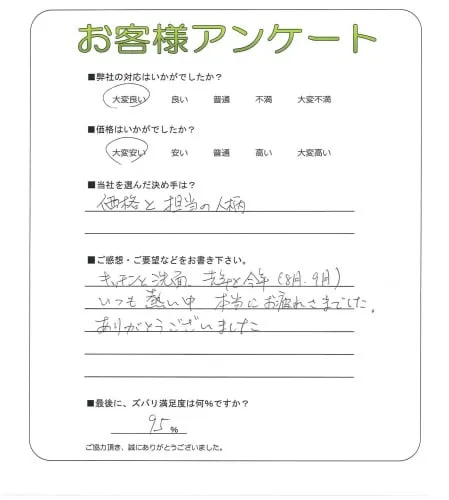 お客様アンケート
■弊社の対応はいかがでしたか？
大変良い 良い 普通 不満 大変不満
■価格はいかがでしたか？
大変安い 安い 普通 高い 大変高い
■当社を選んだ決め手は？
価格と担当の人柄
■ご感想・ご要望などをお書き下さい。
キッチンと洗面、去年と今年（8月、9月）
いつも熱い中 本当にお疲れさまでした。
ありがとうございました
■最後に、ズバリ満足度は何％ですか？
95％
ご協力頂き、誠にありがとうございました。